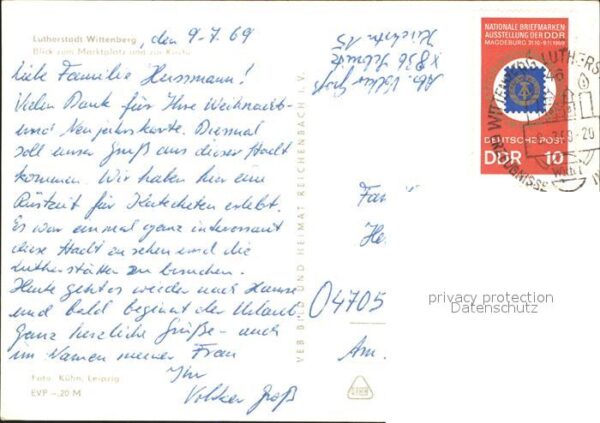 Lutherstadt Wittenberg
Blick zum Marktplatz und zur Kirche
, den 9.7.69
Liebe Familie Herrmann!
Vielen Dank für Ihre Weihnacht-
und Neujahrskarte. Diesmal
soll unser Gruß aus dieser Stadt
kommen. Wir haben hier eine
Rüstzeit für Katecheten erlebt.
Es war einmal ganz interessant
diese Stadt zu sehen und die
Lutherstätten zu besuchen.
Heute geht es wieder nach Hause
und bald beginnt der Urlaub.
Ganz herzliche Grüße - auch
im Namen meiner Frau
Ihr
Volker Groß
Foto: Kühn, Leipzig
EVP -.20 M
VEB BILD UND HEIMAT REICHENBACH I. V.
Abs. Volker Groß
X 836 Sebnitz
Kirchstr. 15
NATIONALE BRIEFMARKEN-
AUSSTELLUNG DER DDR
MAGDEBURG 31.10.-9.11.1969
DEUTSCHE POST
DDR 10
WITTENBERG LUTHERS
46
Fam
He
04705
Am
privacy protection
Datenschutz